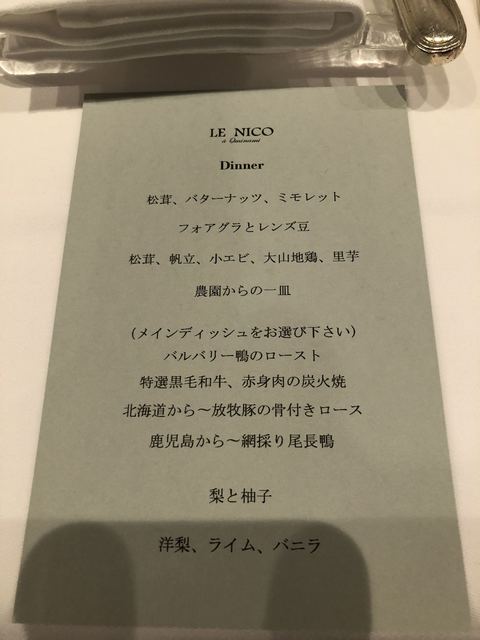 LE NICO
à Ouinami
Dinner
松茸、バターナッツ、ミモレット
フォアグラとレンズ豆
松茸、帆立、小エビ、大山地鶏、里芋
農園からの一皿
(メインディッシュをお選び下さい)
バルバリー鴨のロースト
特選黒毛和牛、赤身肉の炭火焼
北海道から～放牧豚の骨付きロース
鹿児島から～網採り尾長鴨
梨と柚子
洋梨、ライム、バニラ